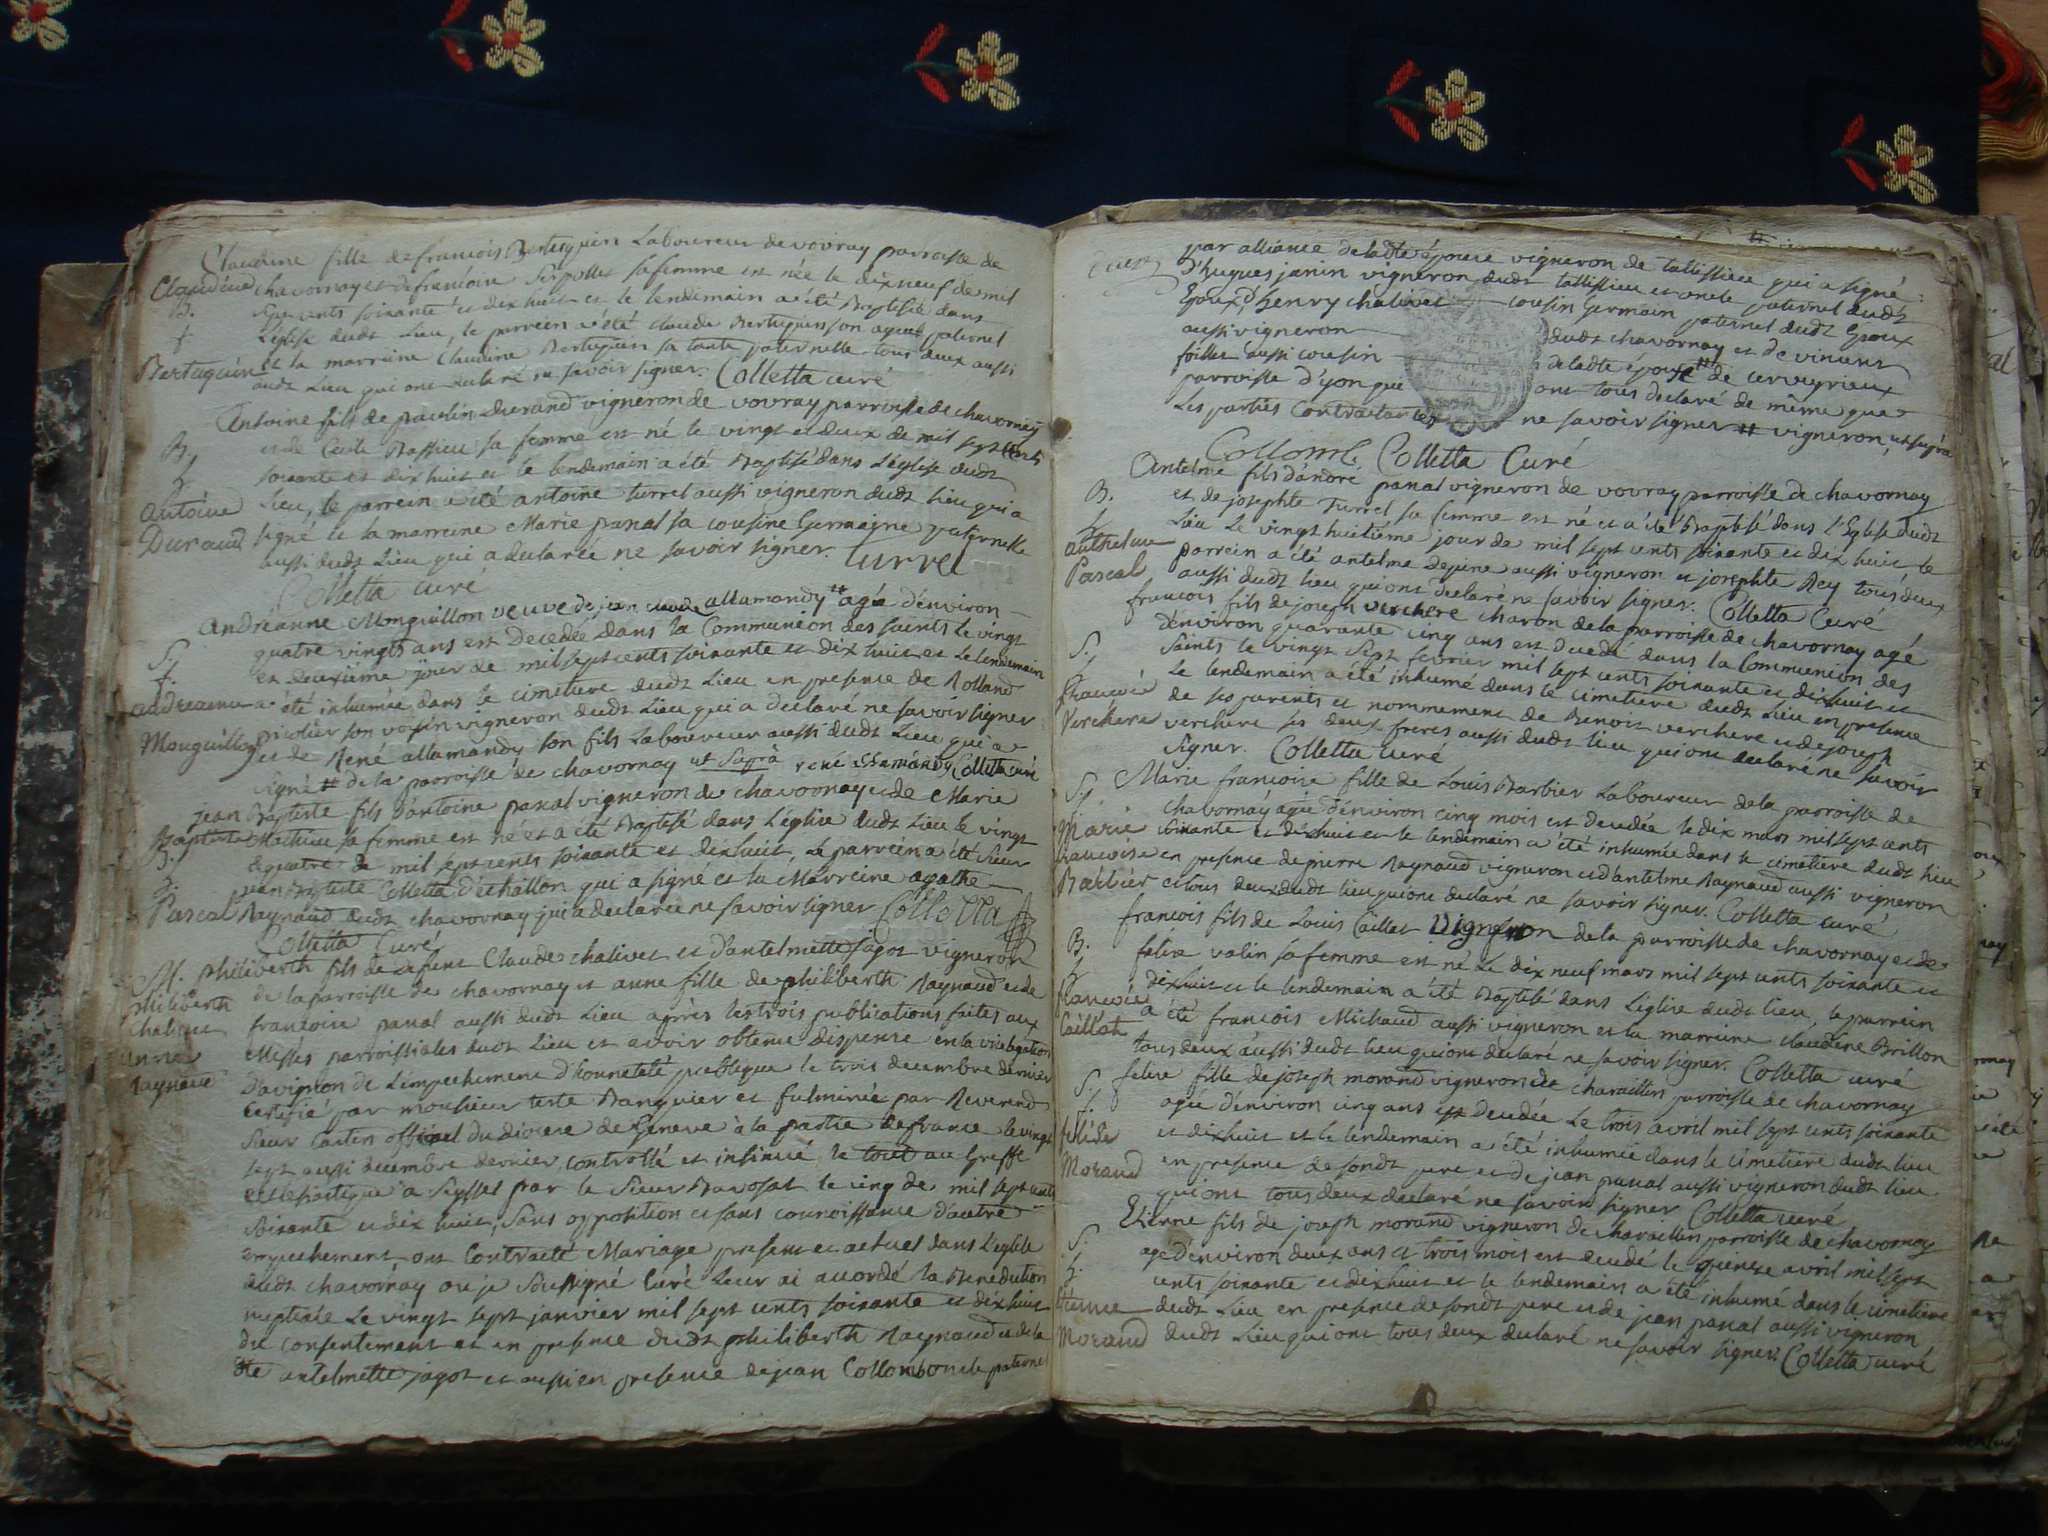 Claudine fille de francois Bertuguin Laboureur de vovray parroisse de
Claudine chavornay et de francoise sa femme est née le dix neuf de mil
B. sept cents soixante et dix huit et le lendemain a été Baptisée dans
L'église dudt Lieu, le parrein a été claude Bertuguin son ayeul paternel
Bertuguin et la marreine Claudine Bertuguin sa tante paternelle tous deux aussi
audt Lieu qui ont declaré ne savoir signer. Colletta curé
Antoine fils de paulin Durand vigneron de vovray parroisse de chavornay
B. et de Cecile Bassieu sa femme est né le vingt et deux de mil sept cents
soixante et dix huit et le lendemain a été Baptisé dans L'église dudt
Antoine Lieu, le parrein a été antoine turrel aussi vigneron dudt Lieu qui a
Durand signé et la marreine Marie panal sa cousine Germaine paternelle
aussi dudt Lieu qui a declarée ne savoir signer. turrel
Colletta curé
andréanne Monguillon veuve de jean claude allamandy # agée d'environ
S. quatre vingts ans est Decedée dans la Communion des saints le vingt
et deuxiême jour de mil sept cents soixante et dix huit et Le lendemain
andreanne a été inhumée dans le cimetiere dudt Lieu en presence de Rolland
son voisin vigneron dudt Lieu qui a declaré ne savoir signer
Monguillon et de René allamandy son fils Laboureur aussi dudt Lieu qui a
signé # de la parroisse de chavornay ut supra rené alamandy Colletta curé
jean Baptiste fils d'antoine panal vigneron de chavornay et de Marie
Baptiste Mathieu sa femme est né et a été Baptisé dans L'église dudt Lieu le vingt
B. et quatre de mil sept cents soixante et dix huit, Le parrein a été sieur
jean Baptiste Colletta d'échallon qui a signé et la Marreine agathe
Pascal Raynaud dudt chavornay qui a declarée ne savoir signer Colletta
Colletta Curé
M. philiberth fils de defunt Claude chalivet et d'antelmette jagot vigneron
philiberth de la parroisse de chavornay et anne fille de philiberth Raynaud et de
Chalivet francoise panal aussi dudt Lieu après les trois publications faites aux
anne Messes parroissiales dudt Lieu et avoir obtenu dispense en la vicelegation
Raynaud D'avignon de L'empechement d'honnêteté publique le trois decembre dernier
certifié par monsieur teste Banquier et fulminée par Reverend
sieur Cartin official du diocese de Geneve à la partie de france le vingt
sept aussi decembre dernier controllé et insinué le tout au Greffe
ecclesiastique a seyssel par le sieur Bavosat le cinq de mil sept cents
soixante et dix huit, sans opposition et sans connoissance d'autre
empechement ont Contracté Mariage present et actuel dans L'eglise
dudt chavornay ou je soussigné Curé Leur ai accordé la Benediction
nuptiale Le vingt sept janvier mil sept cents soixante et dix huit
du consentement et en presence dudt philiberth Raynaud et de la
dte antelmette jagot et aussi en presence de jean Collomb oncle paternel
par alliance de ladte épouse vigneron de tallissieu qui a signé
D'hugues janin vigneron dudt tallissieu et oncle paternel dudt
Epoux, d'henry chalivet cousin Germain paternel dudt Epoux
aussi vigneron dudt chavornay et de vincent
foillet aussi cousin de ladte épouse # de cerveyrieux
parroisse d'yon qui ont tous declaré de même que
Les parties Contractantes ne savoir signer # vigneron ut supra
Collomb Colletta Curé
Antelme fils d'andré panal vigneron de vovray parroisse de chavornay
B. et de josephte Turrel sa femme est né et a été Baptisé dans L'Eglise dudt
Lieu Le vingt huitieme jour de mil sept cents soixante et dix huit le
anthelme parrein a été antelme Dejune aussi vigneron et josephte Rey tous deux
Pascal aussi dudt Lieu qui ont declaré ne savoir signer. Colletta Curé
francois fils de joseph verchere charon de la parroisse de chavornay agé
d'environ quarante cinq ans est decedé dans la Communion des
S. saints le vingt sept fevrier mil sept cents soixante et dix huit et
Le lendemain a été inhumé dans le cimetiere dudt Lieu en presence
francois de ses parents et nommement de Benoit verchere et de joseph
Verchere verchere ses deux freres aussi dudt Lieu qui ont declaré ne savoir
signer. Colletta curé
S. Marie francoise fille de Louis Barbier Laboureur de la parroisse de
chavornay agée d'environ cinq mois est decedée le dix mars mil sept cents
Marie soixante et dix huit et le lendemain a été inhumée dans le cimetiere dudt Lieu
francoise en presence de pierre Raynaud vigneron et d'antelme Raynaud aussi vigneron
Barbier et tous deux dudt Lieu qui ont declaré ne savoir signer. Colletta curé
francois fils de Louis Caillat Vigneron de la parroisse de chavornay et de
B. felise valin sa femme est né Le dix neuf mars mil sept cents soixante et
dix huit et le lendemain a été Baptisé dans L'église dudt Lieu, le parrein
francois a été francois Michaud aussi vigneron et la marreine claudine Brillon
Caillat tous deux aussi dudt Lieu qui ont declaré ne savoir signer. Colletta curé
felise fille de joseph morand vigneron de charaillin parroisse de chavornay
S. agée d'environ cinq ans est decedée Le trois avril mil sept cents soixante
felise et dix huit et le lendemain a été inhumée dans le cimetiere dudt lieu
Morand en presence de sondt pere et de jean panal aussi vigneron dudt lieu
qui ont tous deux declaré ne savoir signer Colletta curé
Etienne fils de joseph morand vigneron de charaillin parroisse de chavornay
S. agé d'environ deux ans et trois mois est decedé le quinze avril mil sept
cents soixante et dix huit et le lendemain a été inhumé dans le cimetiere
Etienne dudt Lieu en presence de sondt pere et de jean panal aussi vigneron
Morand dudt Lieu qui ont tous deux declaré ne savoir signer. Colletta curé